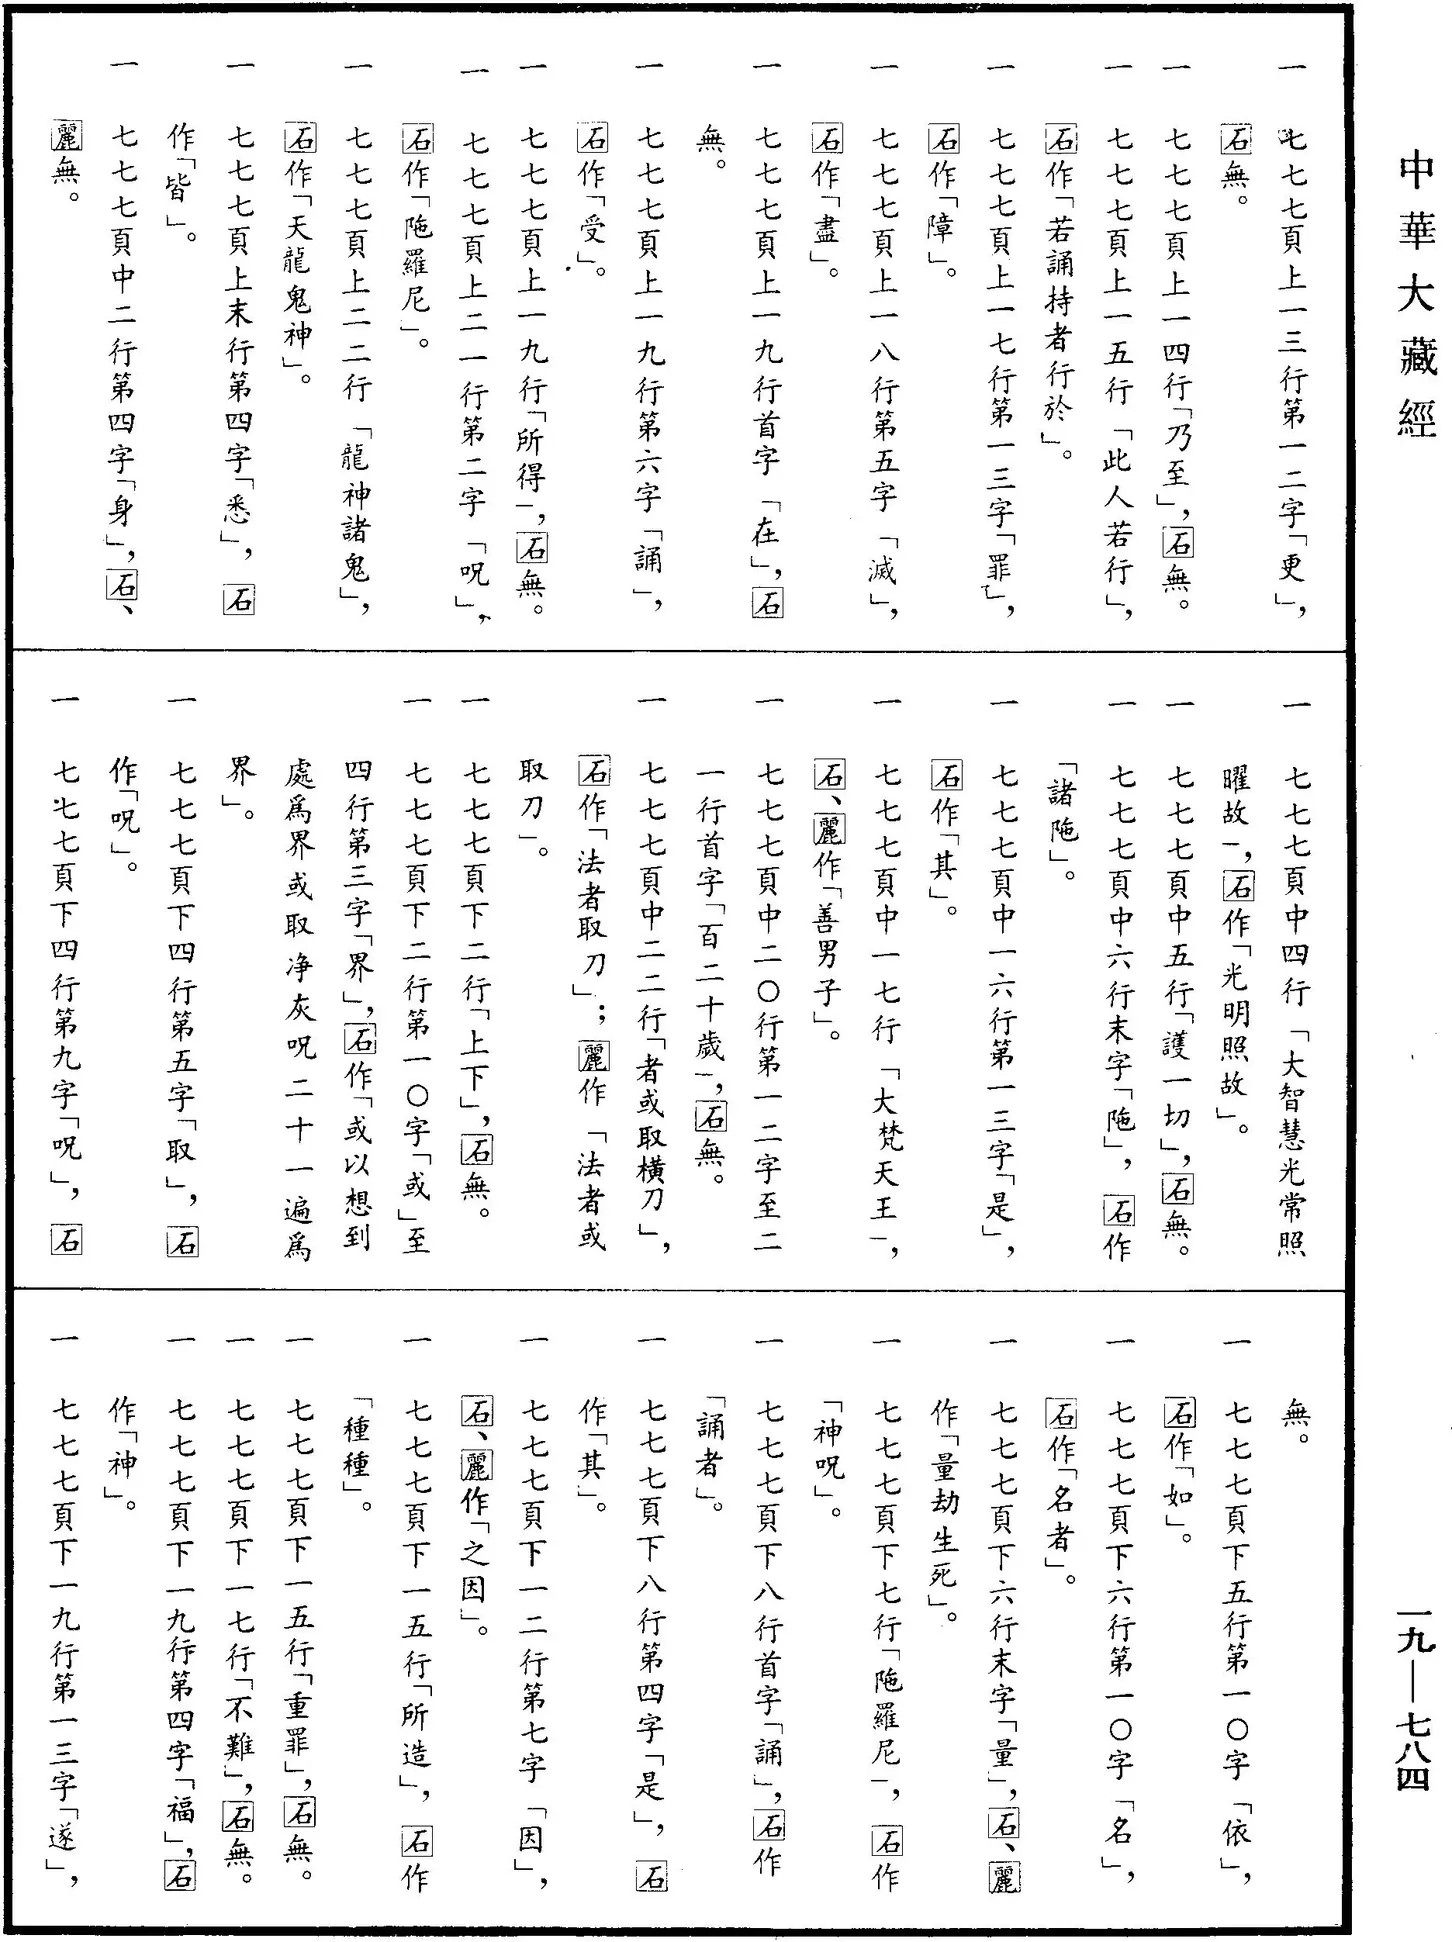 中華大藏經
一 七七七頁上一三行第一二字「更」，
石無。
一 七七七頁上一四行「乃至」，石無。
一 七七七頁上一五行「此人若行」，
石作「若誦持者行於」。
一 七七七頁上一七行第一三字「罪」，
石作「障」。
一 七七七頁上一八行第五字「滅」，
石作「盡」。
一 七七七頁上一九行首字「在」，石
無。
一 七七七頁上一九行第六字「誦」，
石作「受」。
一 七七七頁上一九行「所得」，石無。
一 七七七頁上二一行第二字「呪」，
石作「陁羅尼」。
一 七七七頁上二二行「龍神諸鬼」，
石作「天龍鬼神」。
一 七七七頁上末行第四字「悉」，石
作「皆」。
一 七七七頁中二行第四字「身」，石、
麗無。
一 七七七頁中四行「大智慧光常照
曜故」，石作「光明照故」。
一 七七七頁中五行「護一切」，石無。
一 七七七頁中六行末字「陁」，石作
「諸陁」。
一 七七七頁中一六行第一三字「是」，
石作「其」。
一 七七七頁中一七行「大梵天王」，
石、麗作「善男子」。
一 七七七頁中二〇行第一二字至二
一行首字「百二十歲」，石無。
一 七七七頁中二二行「者或取橫刀」，
石作「法者取刀」；麗作「法者或
取刀」。
一 七七七頁下二行「上下」，石無。
一 七七七頁下二行第一〇字「或」至
四行第三字「界」，石作「或以想到
處爲界或取净灰呪二十一遍爲
界」。
一 七七七頁下四行第五字「取」，石
作「呪」。
一 七七七頁下四行第九字「呪」，石
無。
一 七七七頁下五行第一〇字「依」，
石作「如」。
一 七七七頁下六行第一〇字「名」，
石作「名者」。
一 七七七頁下六行末字「量」，石、麗
作「量劫生死」。
一 七七七頁下七行「陁羅尼」，石作
「神呪」。
一 七七七頁下八行首字「誦」，石作
「誦者」。
一 七七七頁下八行第四字「是」，石
作「其」。
一 七七七頁下一二行第七字「因」，
石、麗作「之因」。
一 七七七頁下一五行「所造」，石作
「種種」。
一 七七七頁下一五行「重罪」，石無。
一 七七七頁下一七行「不難」，石無。
一 七七七頁下一九行第四字「福」，石
作「神」。
一 七七七頁下一九行第一三字「遂」，
一九—七八四